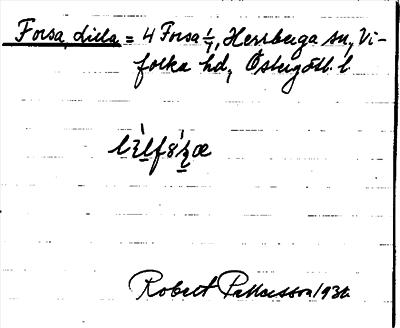 Forsa, Lilla = 4 Forsa 1/4, Herrberga sn, Vi-
folka hd, Östergötl. l
Robert Pettersson 193